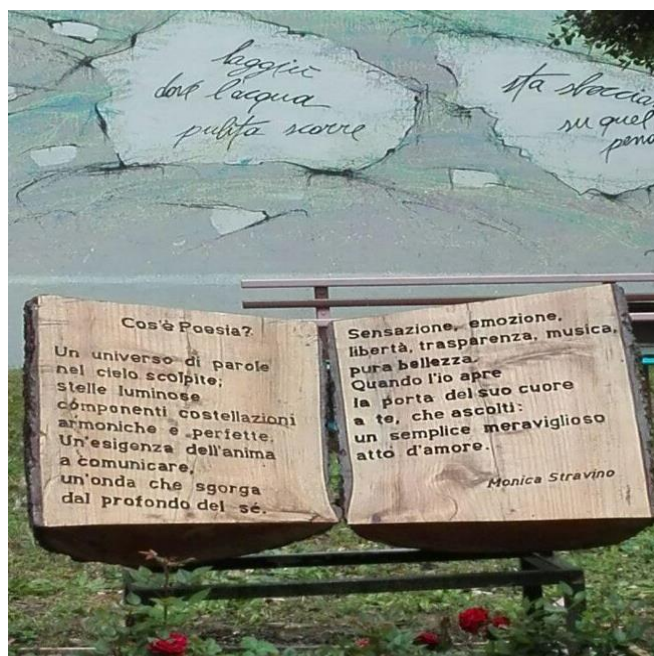 laggiù
dove l'acqua
pulita scorre
sta sboccia
su quel
pend
Cos'è Poesia?
Un universo di parole
nel cielo scolpite;
stelle luminose
componenti costellazioni
armoniche e perfette.
Un'esigenza dell'anima
a comunicare,
un'onda che sgorga
dal profondo del sé.
Sensazione, emozione,
libertà, trasparenza, musica,
pura bellezza.
Quando l'io apre
la porta del suo cuore
a te, che ascolti:
un semplice meraviglioso
atto d'amore.
Monica Stravino